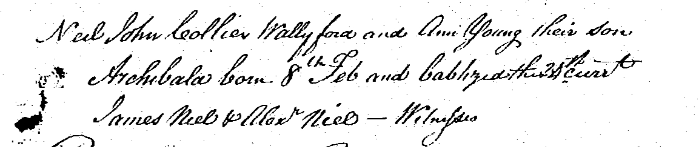 Neil John Collier Wallyford and Ann Young their son
Archibald born 8th Feb and babtized the 24th currt
James Niel & Alexr Niel — Witnesses